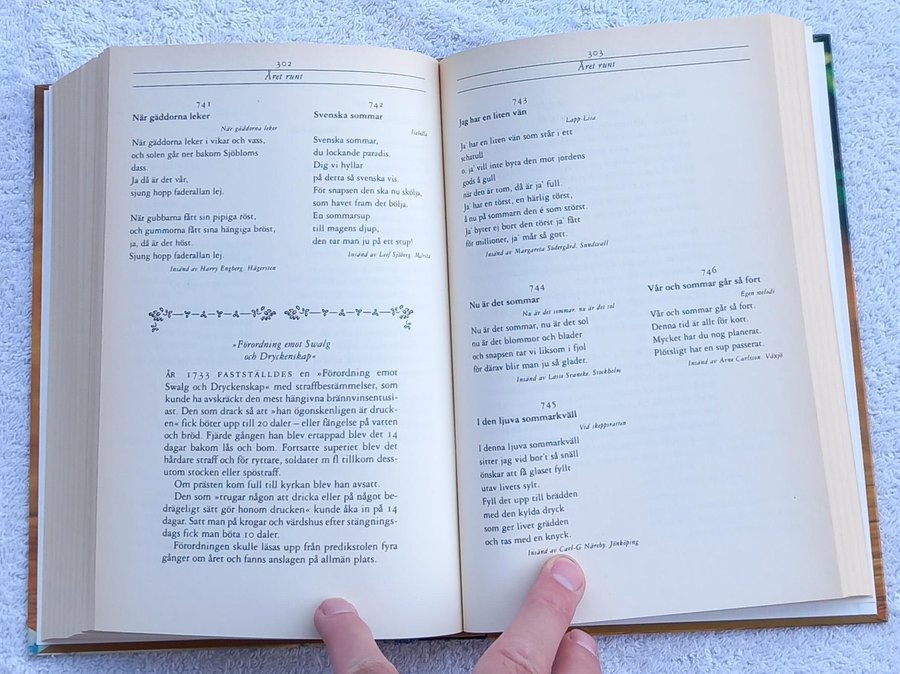 302
Året runt
741
När gäddorna leker
När gäddorna leker
När gäddorna leker i vikar och vass,
och solen går ner bakom Sjöbloms
dass.
Ja då är det vår,
sjung hopp faderallan lej.
När gubbarna fått sin pipiga röst,
och gummorna fått sina hängiga bröst,
ja, då är det höst.
Sjung hopp faderallan lej.
Insänd av Harry Engberg, Hägersten
742
Svenska sommar
Isabella
Svenska sommar,
du lockande paradis.
Dig vi hyllar
på detta så svenska vis.
För snapsen den ska nu skölja,
som havet fram det bölja.
En sommarsup
till magens djup,
den tar man ju på ett stup!
Insänd av Leif Sjöberg, Märsta
»Förordning emot Swalg
och Dryckenskap«
ÅR 1733 FASTSTÄLLDES en »Förordning emot
Swalg och Dryckenskap« med straffbestämmelser, som
kunde ha avskräckt den mest hängivna brännvinsentusi-
ast. Den som drack så att »han ögonskenligen är druck-
en« fick böter upp till 20 daler – eller fängelse på vatten
och bröd. Fjärde gången han blev ertappad blev det 14
dagar bakom lås och bom. Fortsatte superiet blev det
hårdare straff och för ryttare, soldater m fl tillkom dess-
utom stocken eller spöstraff.
Om prästen kom full till kyrkan blev han avsatt.
Den som »trugar någon att dricka eller på något be-
drägeligt sätt gör honom drucken« kunde åka in på 14
dagar. Satt man på krogar och värdshus efter stängnings-
dags fick man böta 10 daler.
Förordningen skulle läsas upp från predikstolen fyra
gånger om året och fanns anslagen på allmän plats.
303
Året runt
743
Jag har en liten vän
Lapp-Lisa
Ja' har en liten vän som står i ett
schatull
o, ja' vill inte byta den mot jordens
gods å gull
när den är tom, då är ja' full.
Ja' har en törst, en härlig törst,
å nu på sommarn den é som störst.
Ja' byter ej bort den törst ja' fått
för millioner, ja' mår så gott.
Insänd av Margareta Södergård, Sundsvall
744
Nu är det sommar
Nu är det sommar, nu är det sol
Nu är det sommar, nu är det sol
nu är det blommor och blader
och snapsen tar vi liksom i fjol
för därav blir man ju så glader.
Insänd av Lasse Svaneke, Stockholm
745
I den ljuva sommarkväll
Vid skeppsrattan
I denna ljuva sommarkväll
sitter jag vid bor't så snäll
önskar att få glaset fyllt
utav livets sylt.
Fyll det upp till brädden
med den kylda dryck
som ger livet grädden
och tas med en knyck.
Insänd av Carl-G Näreby, Jönköping
746
Vår och sommar går så fort
Egen melodi
Vår och sommar går så fort.
Denna tid är allt för kort.
Mycket har du nog planerat.
Plötsligt har en sup passerat.
Insänd av Arne Carlsson, Växjö